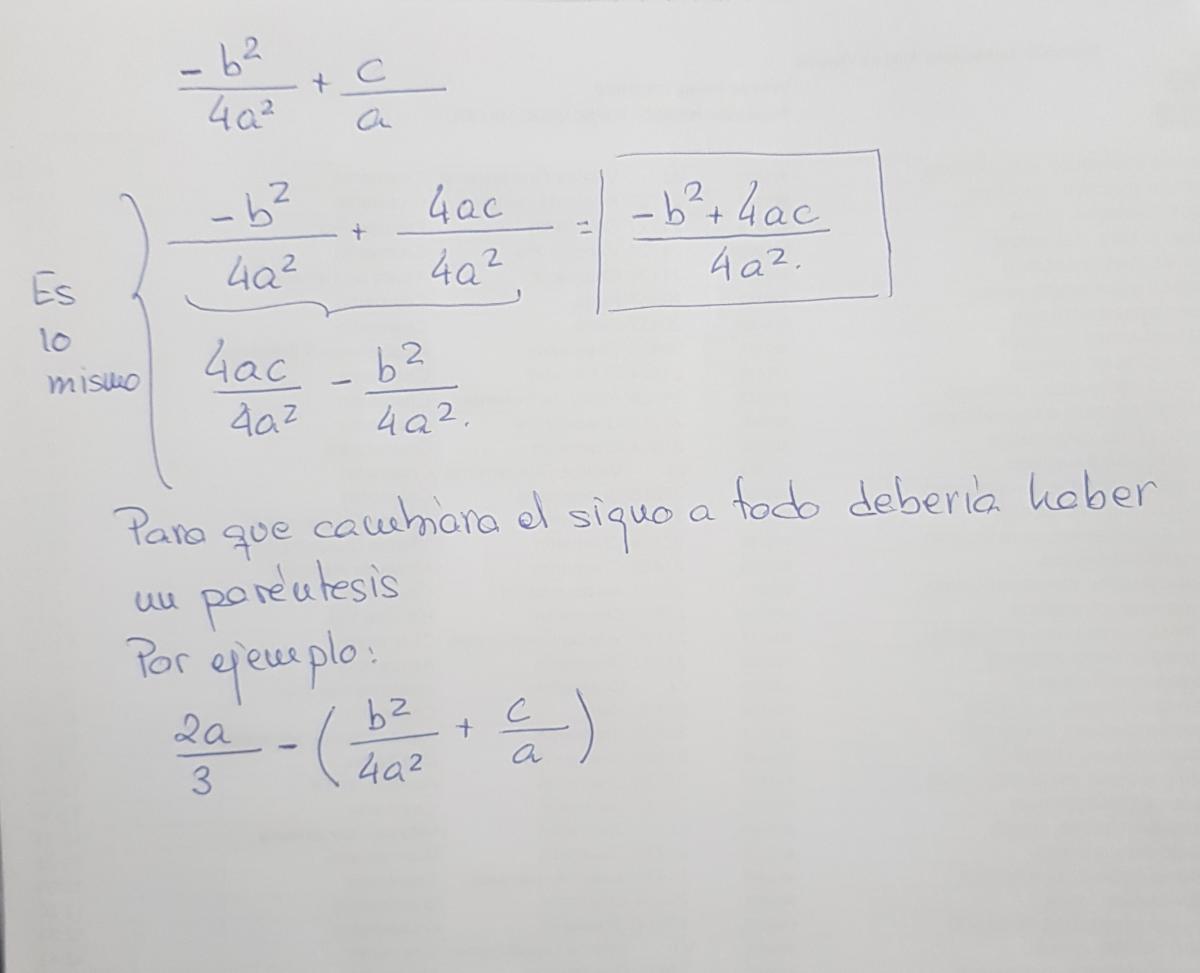 -b²/4a² + c/a
-b²/4a² + 4ac/4a² = -b² + 4ac/4a².
Es
lo
mismo
4ac/4a² - b²/4a².
Para que cambiara el signo a todo debería haber
un paréntesis
Por ejemplo:
2a/3 - (b²/4a² + c/a)